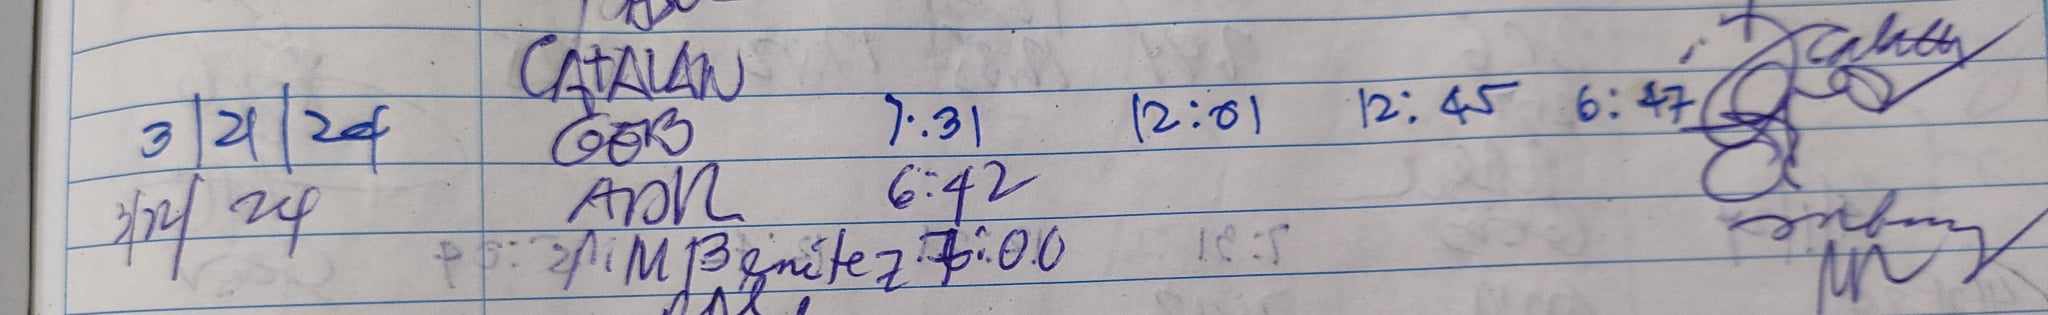 CATALAN
3/21/24 GOB 7:31 12:01 12:45 6:47
3/22/24 ADR 6:42
M Benitez 7:00